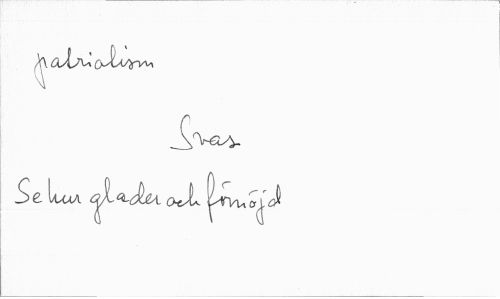 patrialism
Svas
Se hur glader och förnöjd